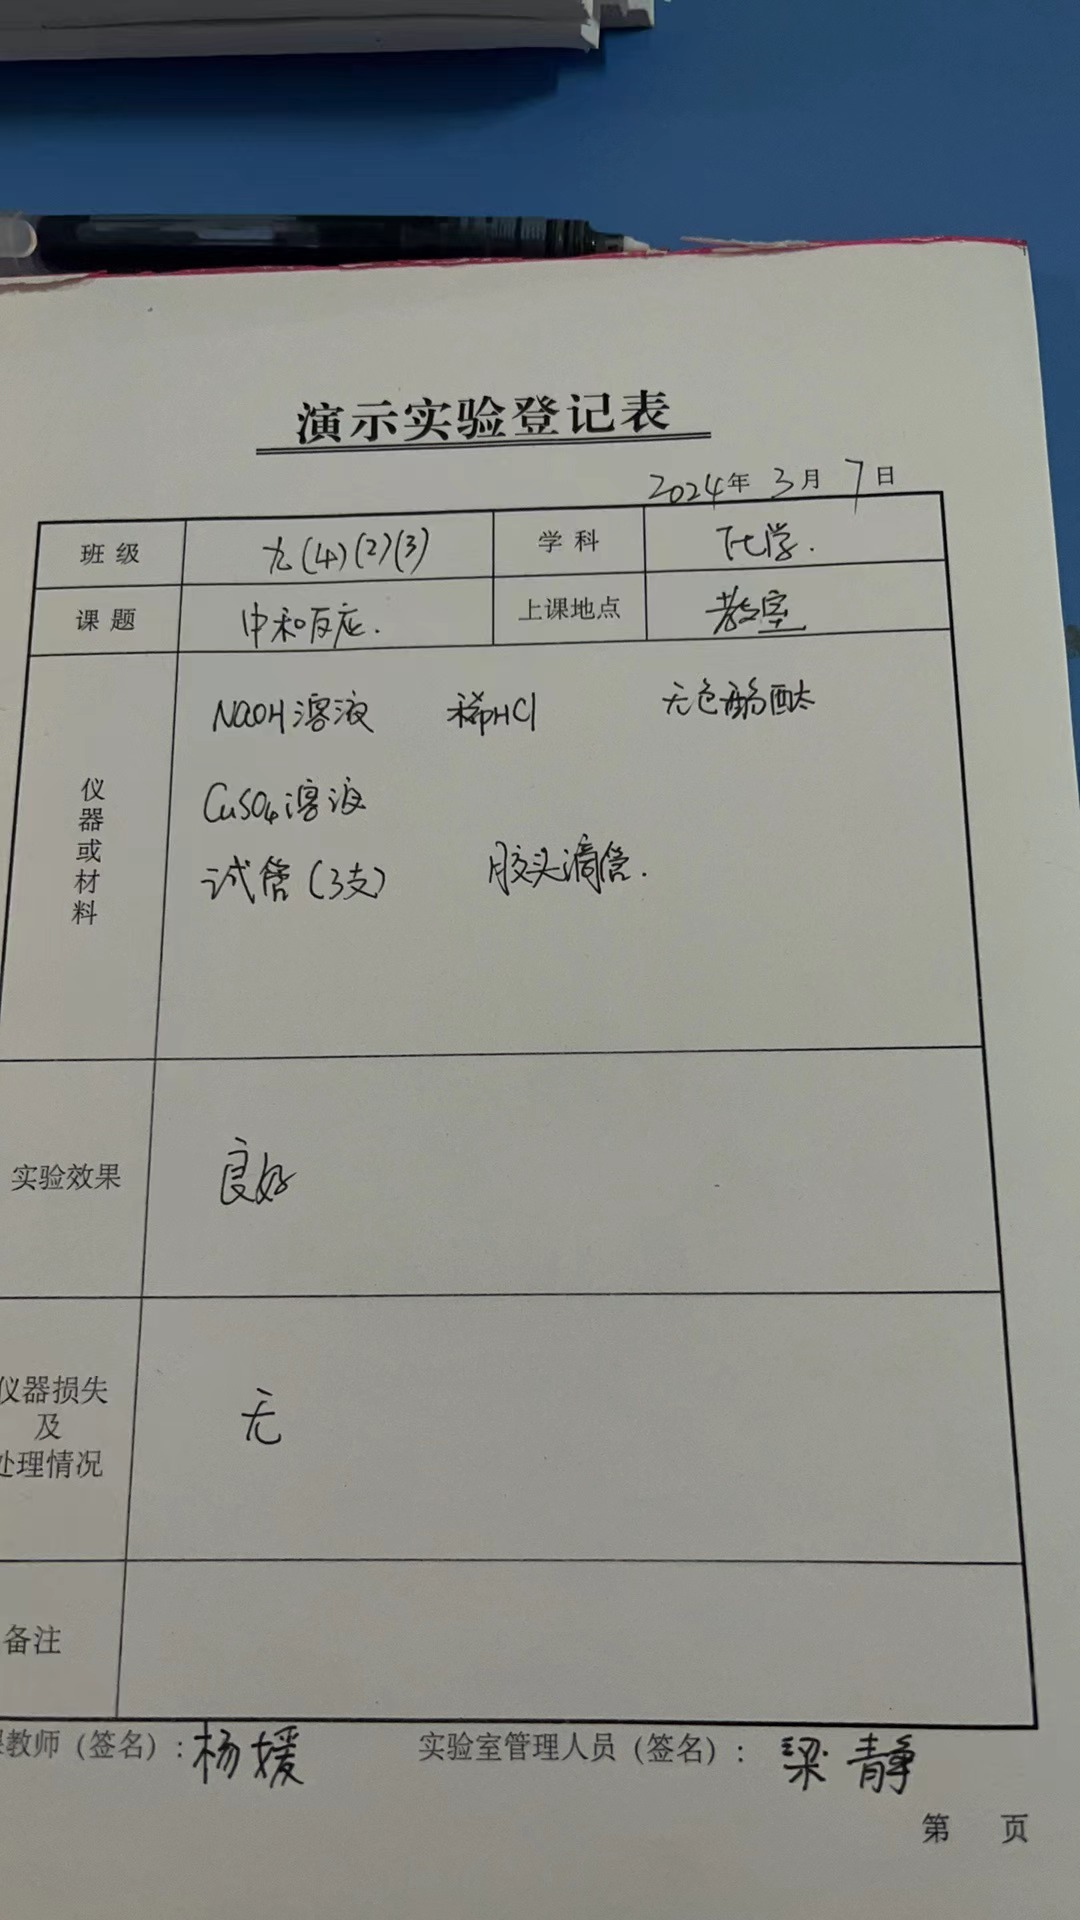 演示实验登记表
2024年 3月 7日
班级 九(4)(2)(3) 学科 化学.
课题 中和反应. 上课地点 教室
仪器或材料
NaOH溶液 稀HCl 无色酚酞
CuSO4溶液
试管(3支) 胶头滴管.
实验效果 良好
仪器损失
及
处理情况
无
备注
教师(签名):杨媛 实验室管理人员(签名): 梁静
第 页